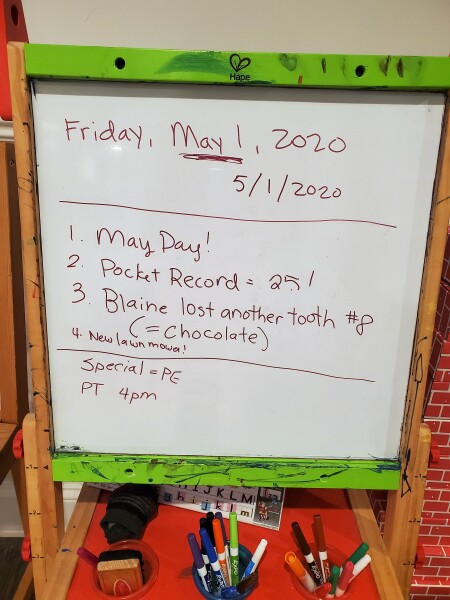 Hape
Friday, May 1, 2020
5/1/2020
1. May Day!
2. Pocket Record = 25!
3. Blaine lost another tooth #8
(= Chocolate)
4. New lawn mowa!
Special = PE
PT 4pm
I J K L M
g h i j k l m